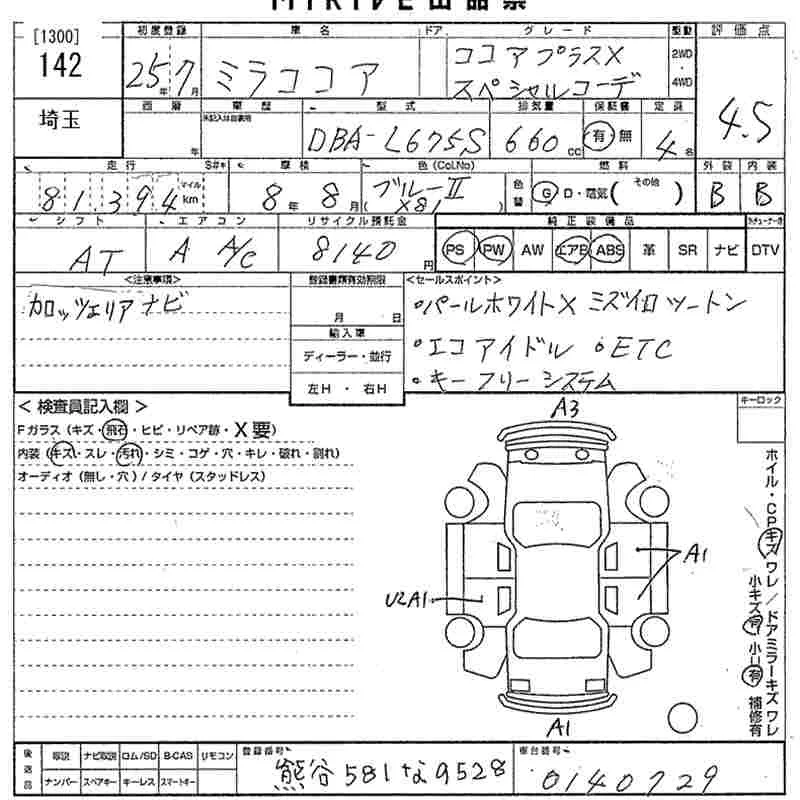 MIRIVE出品票
[1300]
142
埼玉
初度登録 車名 ドア グレード 駆動 評価点
25年7月 ミラココア ココアプラスX スペシャルコーデ 2WD・4WD 4.5
車歴 型式 排気量 保証書 定員
年 DBA-L675S 660cc 有・無 4名
走行 車検 色(Col,No) 色替 燃料 外装 内装
81,394 マイル km 8年8月 ブルーⅡ (X81) G・D・電気(その他) B B
シフト エアコン リサイクル預託金 純正装備品
AT A A/C 8140円 PS PW AW エアB ABS 革 SR ナビ DTV
<注意事項> 登録書類有効期限 <セールスポイント>
カロッツェリアナビ
月 日
輸入車
ディーラー・並行
左H・右H
・パールホワイトX ミズイロツートン
・エコアイドル ・ETC
・キーフリーシステム
キーロック
<検査員記入欄>
Fガラス(キズ・飛石・ヒビ・リペア跡・X要)
内装(キズ・スレ・汚れ・シミ・コゲ・穴・キレ・破れ・割れ)
オーディオ(無し・穴)/タイヤ(スタッドレス)
A3
A1
U2A1
A1
ホイル・CPキズワレ/ドアミラーキズワレ
小キズ有 小U有 補修有
後送品 取説 ナビ取説 ロム/SD B-CAS リモコン
ナンバー スペアキー キーレス スマートキー
登録番号 熊谷581な9528
車台番号 0140729